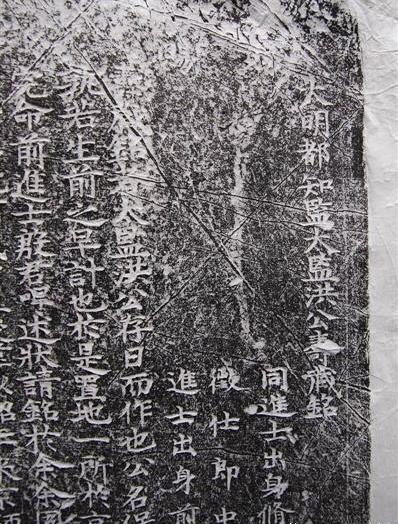 大明都知監太監洪公壽藏銘
同進士出身脩
徵仕郎中
進士出身前
太監洪公存日而作也公名保
若生前之早計也於是置地一所於
命前進士殷君述狀請銘於余余